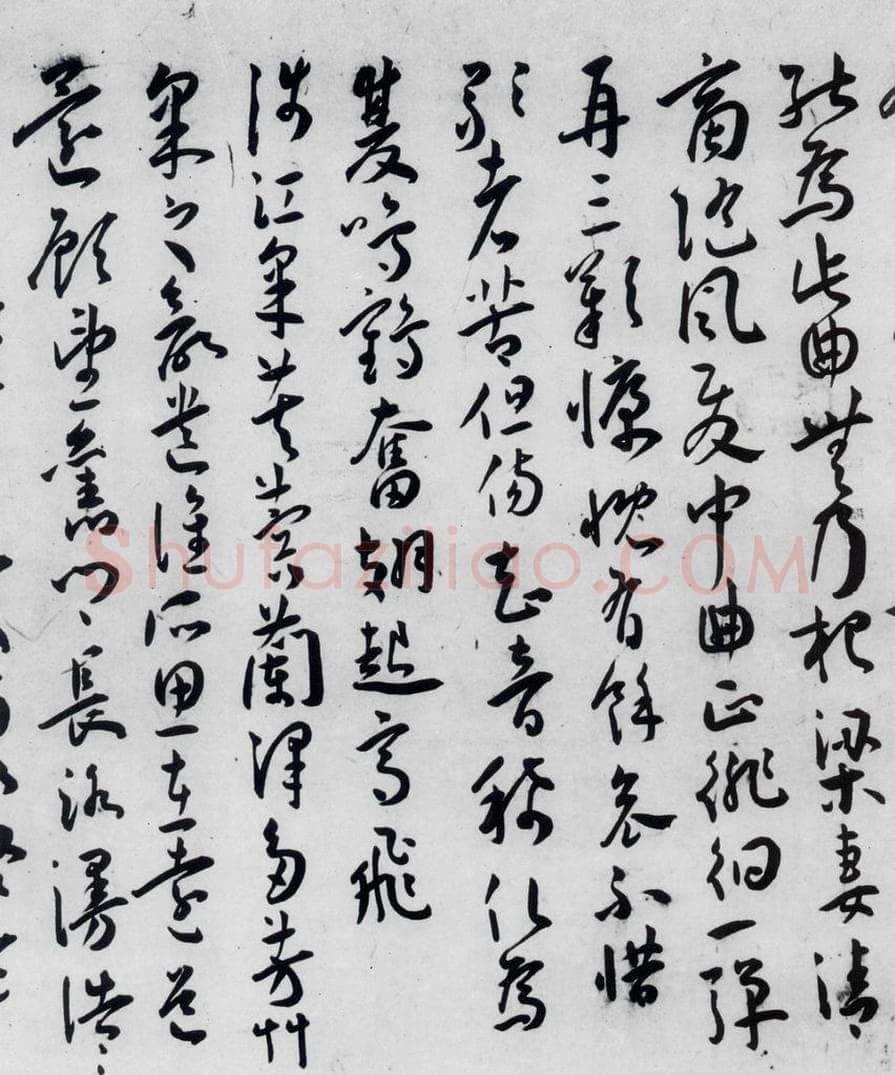 能為此曲無乃杞梁妻清
商隨風發中曲正徘徊一彈
再三歎慷慨有餘哀不惜
歌者苦但傷知音稀化為
雙鳴鶴奮翅起高飛
涉江采芙蓉蘭澤多芳艸
采之欲遺誰所思在遠道
還顧望舊鄉長路漫浩〻
Shufaziliao.COM